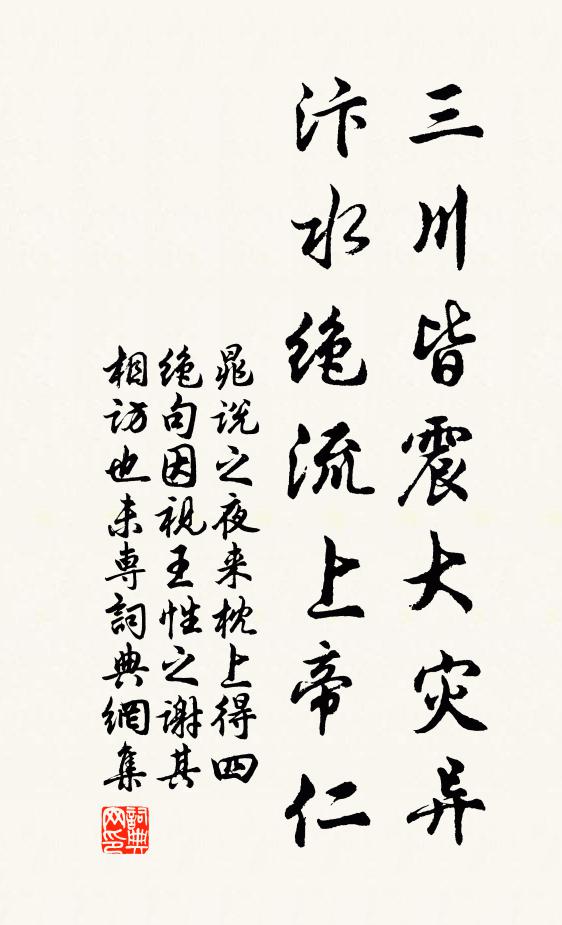 三川皆震大灾异
汴水绝流上帝仁
晁说之夜来枕上得四
绝句因视王性之谢其
相访也未専詞典網集
詞典网印